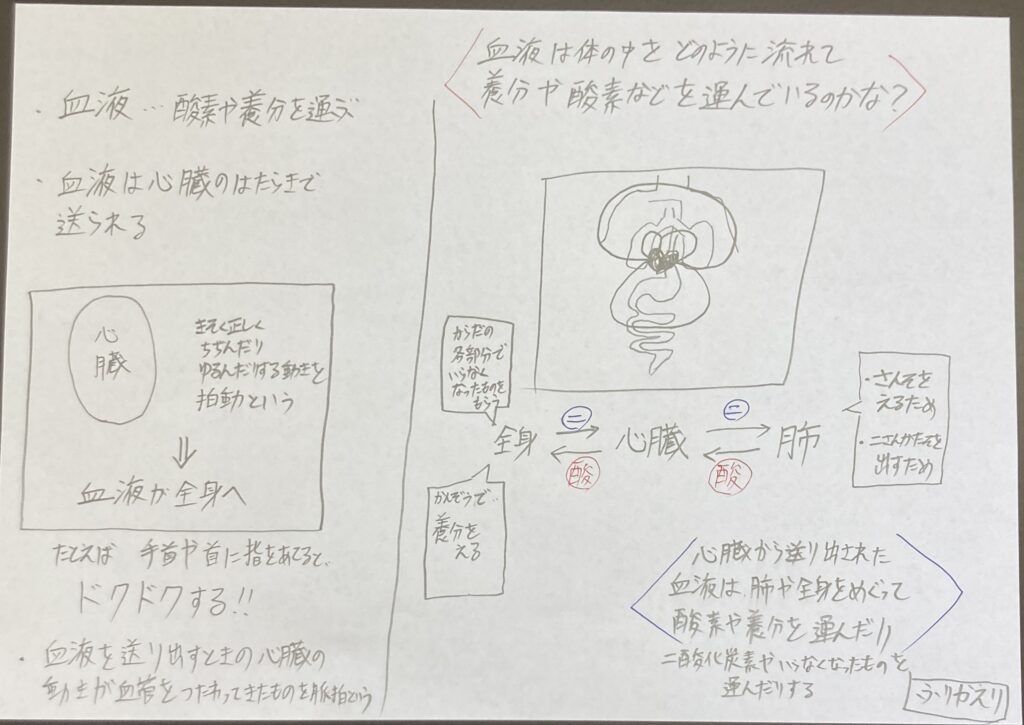 ・血液… 酸素や養分を運ぶ
・血液は心臓のはたらきで
送られる
心
臓
きそく正しく
ちぢんだり
ゆるんだりする動きを
拍動という
⇓
血液が全身へ
たとえば 手首や首に指をあてると、
ドクドクする!!
・血液を送り出すときの心臓の
動きが血管をつたわってきたものを脈拍という
血液は体の中をどのように流れて
養分や酸素などを運んでいるのかな?
からだの
各部分で
いらなく
なったものを
もらう
全身 ニ 心臓 ニ 肺
酸 酸
・さんそを
えるため
・ニさんかたんそを
出すため
かんぞうで…
養分を
える
心臓から送り出された
血液は、肺や全身をめぐって
酸素や養分を運んだり
二酸化炭素やいらなくなったものを
運んだりする
ふりかえり